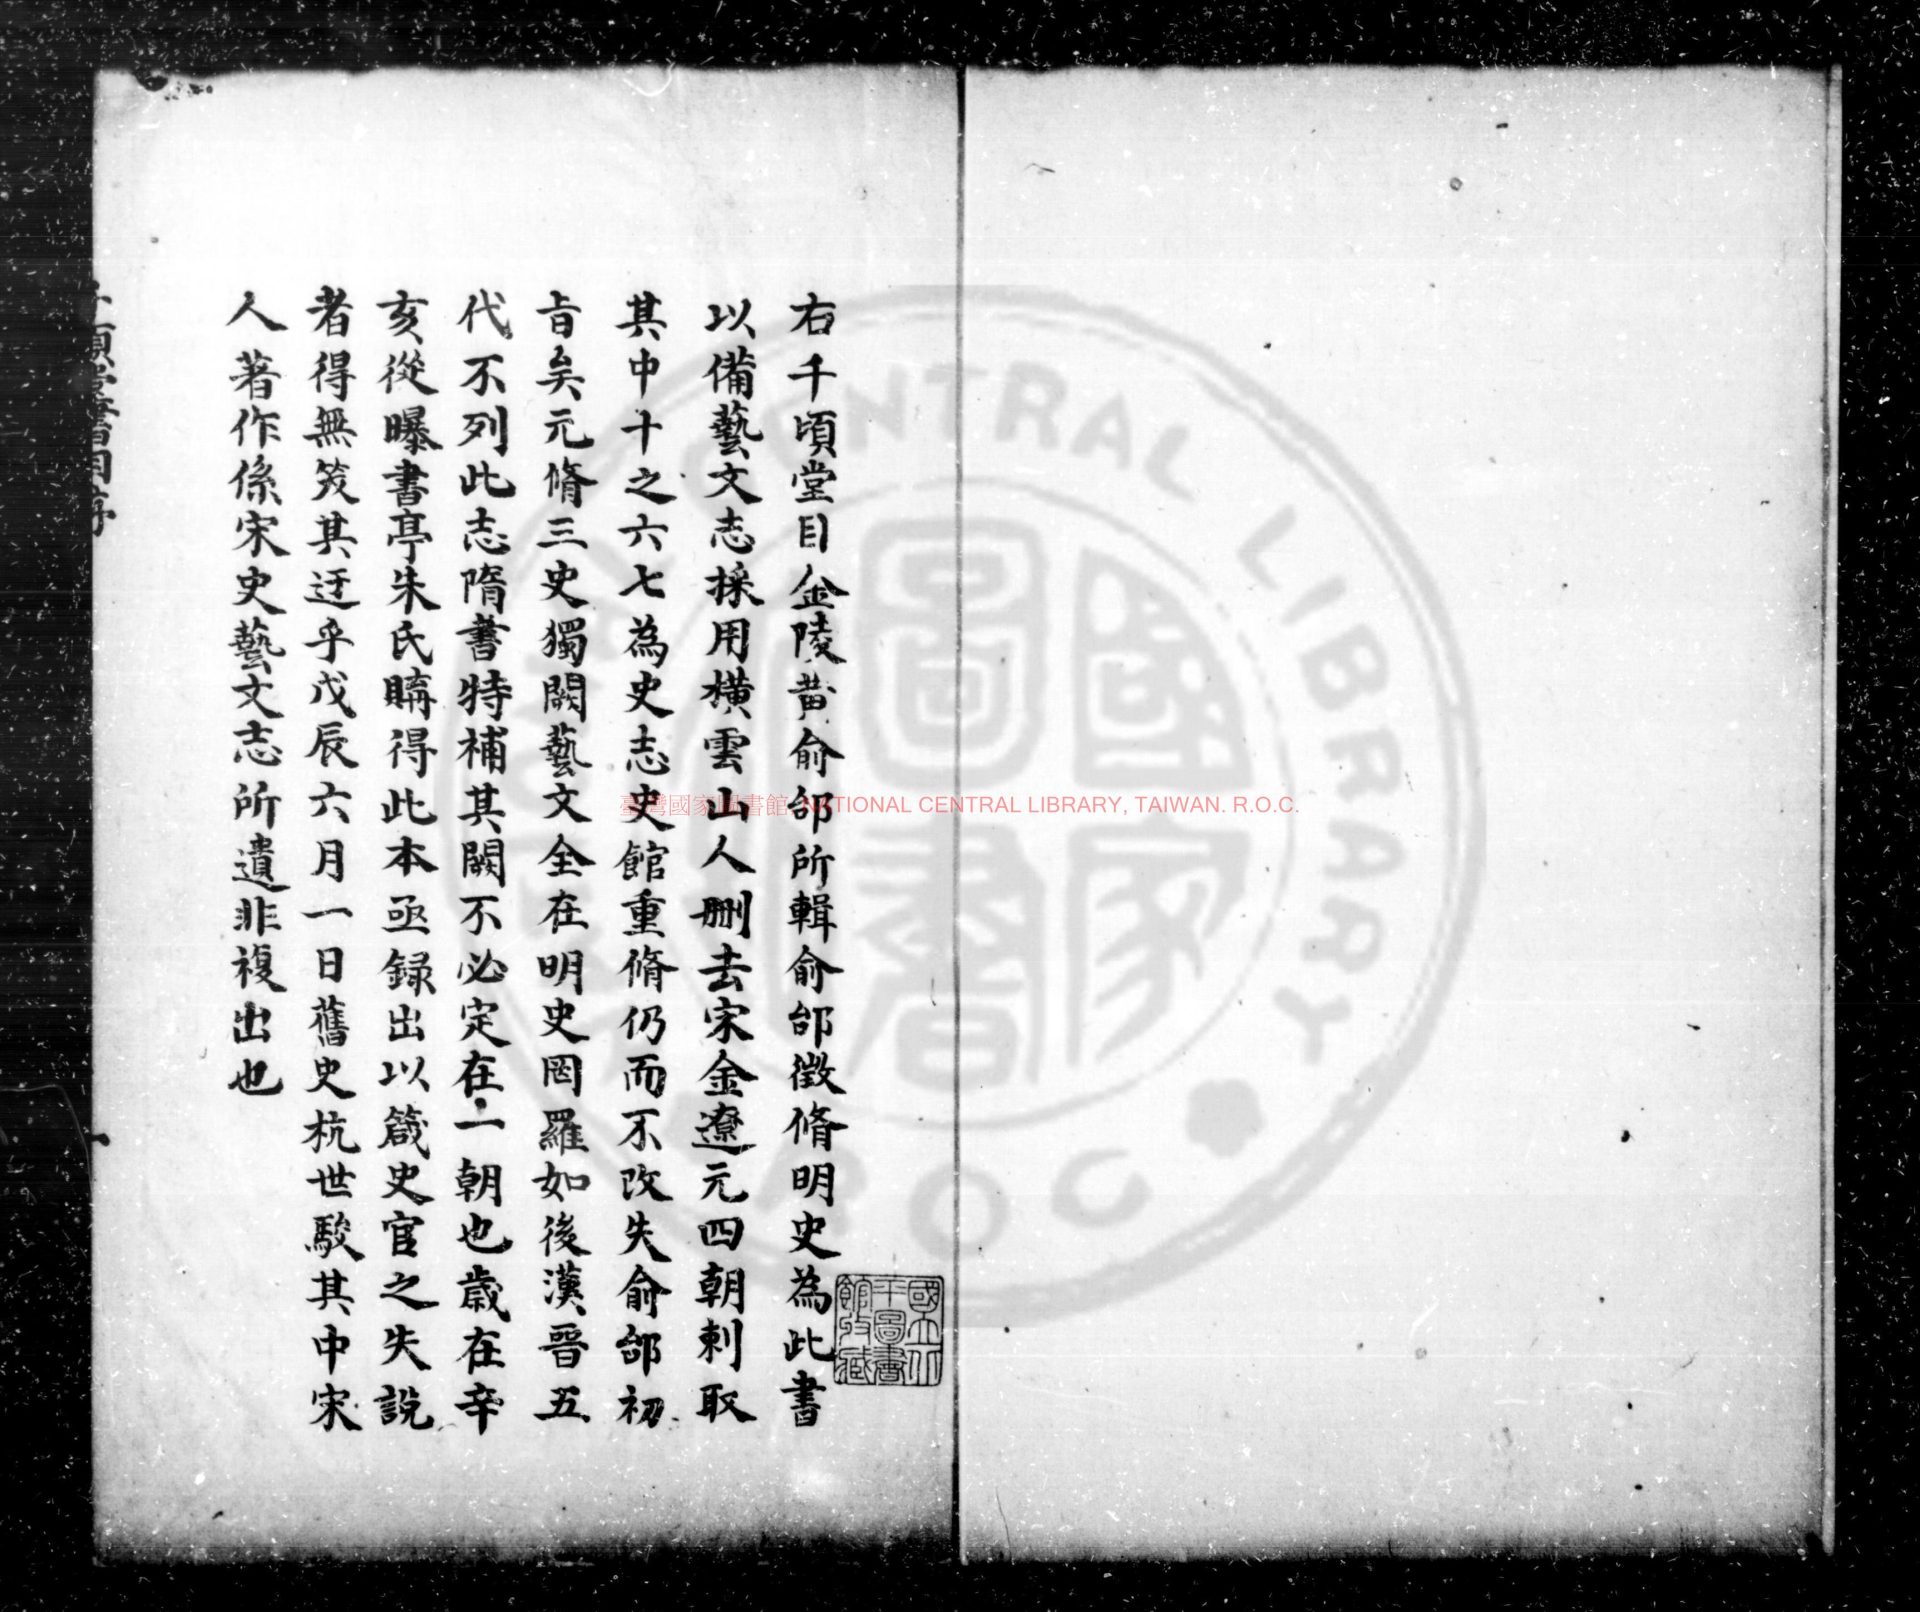 右千頃堂目金陵黄俞邰所輯俞邰徵脩明史為此書
以備藝文志採用橫雲山人刪去宋金遼元四朝剌取
其中十之六七為史志史館重脩仍而不改失俞邰初
旨矣元脩三史獨闕藝文全在明史罔羅如後漢晉五
代不列此志隋書特補其闕不必定在一朝也歲在辛
亥從曝書亭朱氏購得此本亟錄出以箴史官之失說
者得無笑其迂乎戊辰六月一日舊史杭世駿其中宋
人著作係宋史藝文志所遺非複出也
頃堂書目序
一
國立北
平圖書
館收藏
臺灣國家圖書館, NATIONAL CENTRAL LIBRARY, TAIWAN. R.O.C.
CENTRAL LIBRARY
R O C
國家
圖書